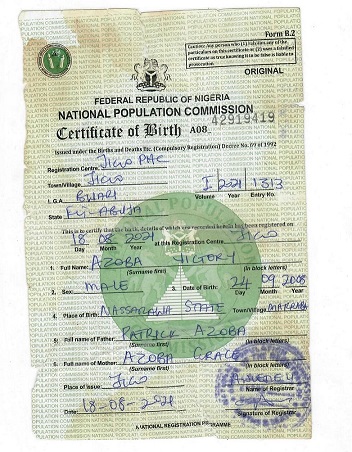 Form B.2
Caution: Any person who (1) falsifies any of the
particulars on this certificate or (2) uses a falsified
certificate as true knowing it to be false is liable to
prosecution.
ORIGINAL
FEDERAL REPUBLIC OF NIGERIA
NATIONAL POPULATION COMMISSION
42919419
Certificate of Birth A08
Issued under the Births and Deaths Etc. (Compulsory Registration) Decree No. 69 of 1992
Registration Centre JIGO PHC
Town/Village JIGO
L.G.A BWARI I 2021 1313
State Volume Year Entry No.
This is to certify that the birth, details of which are recorded herein has been registered on
18 08 2021 at this Registration Centre JIGO
Day Month Year
1. Full Name: AZOBA VICTORY
(Surname first) (in block letters)
2. Sex: MALE 3. Date of Birth: 24 09 2008
Day Month Year
4. Place of Birth: NASSARAWA STATE
(Town/Village)
5. Full name of Father: PATRICK AZOBA
(Surname first) (in block letters)
6. Full name of Mother: AZOBA GRACE
(Surname first) (in block letters)
Place of issue: JIGO
Name of Registrar
Date: 18-08-2021
Signature of Registrar
NATIONAL REGISTRATION PROGRAMME